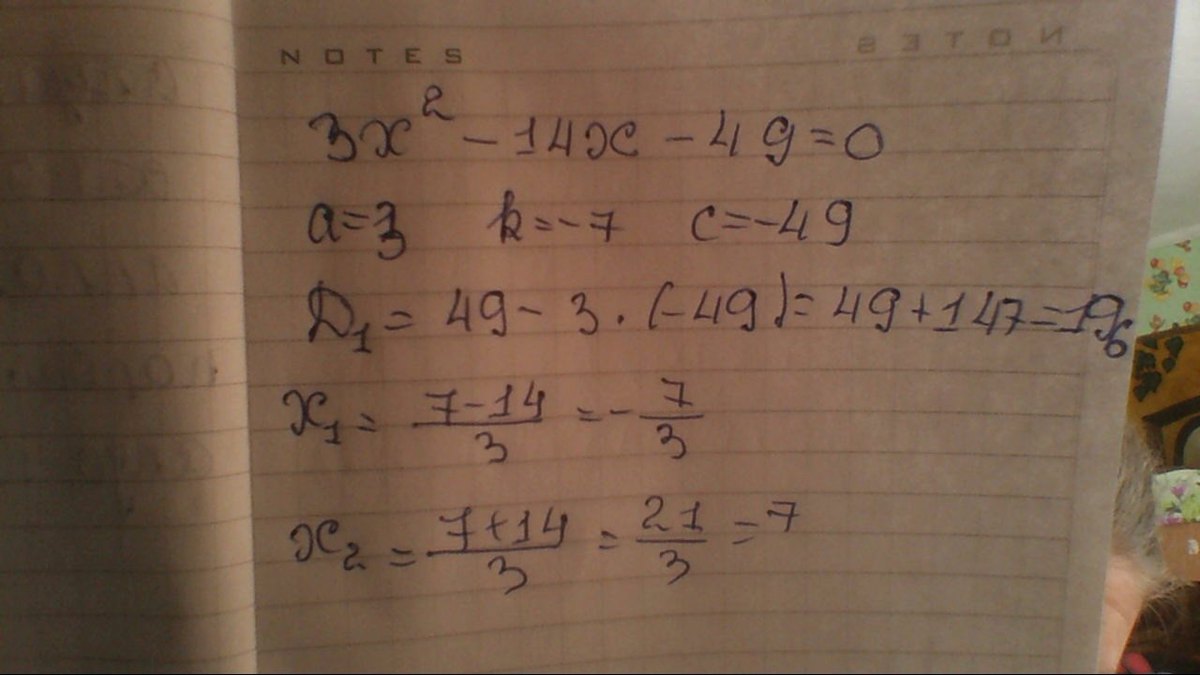 NOTES
3x² - 14x - 49 = 0
a = 3 k = -7 c = -49
D₁ = 49 - 3 · (-49) = 49 + 147 = 196
x₁ = (7 - 14)/3 = - 7/3
x₂ = (7 + 14)/3 = 21/3 = 7